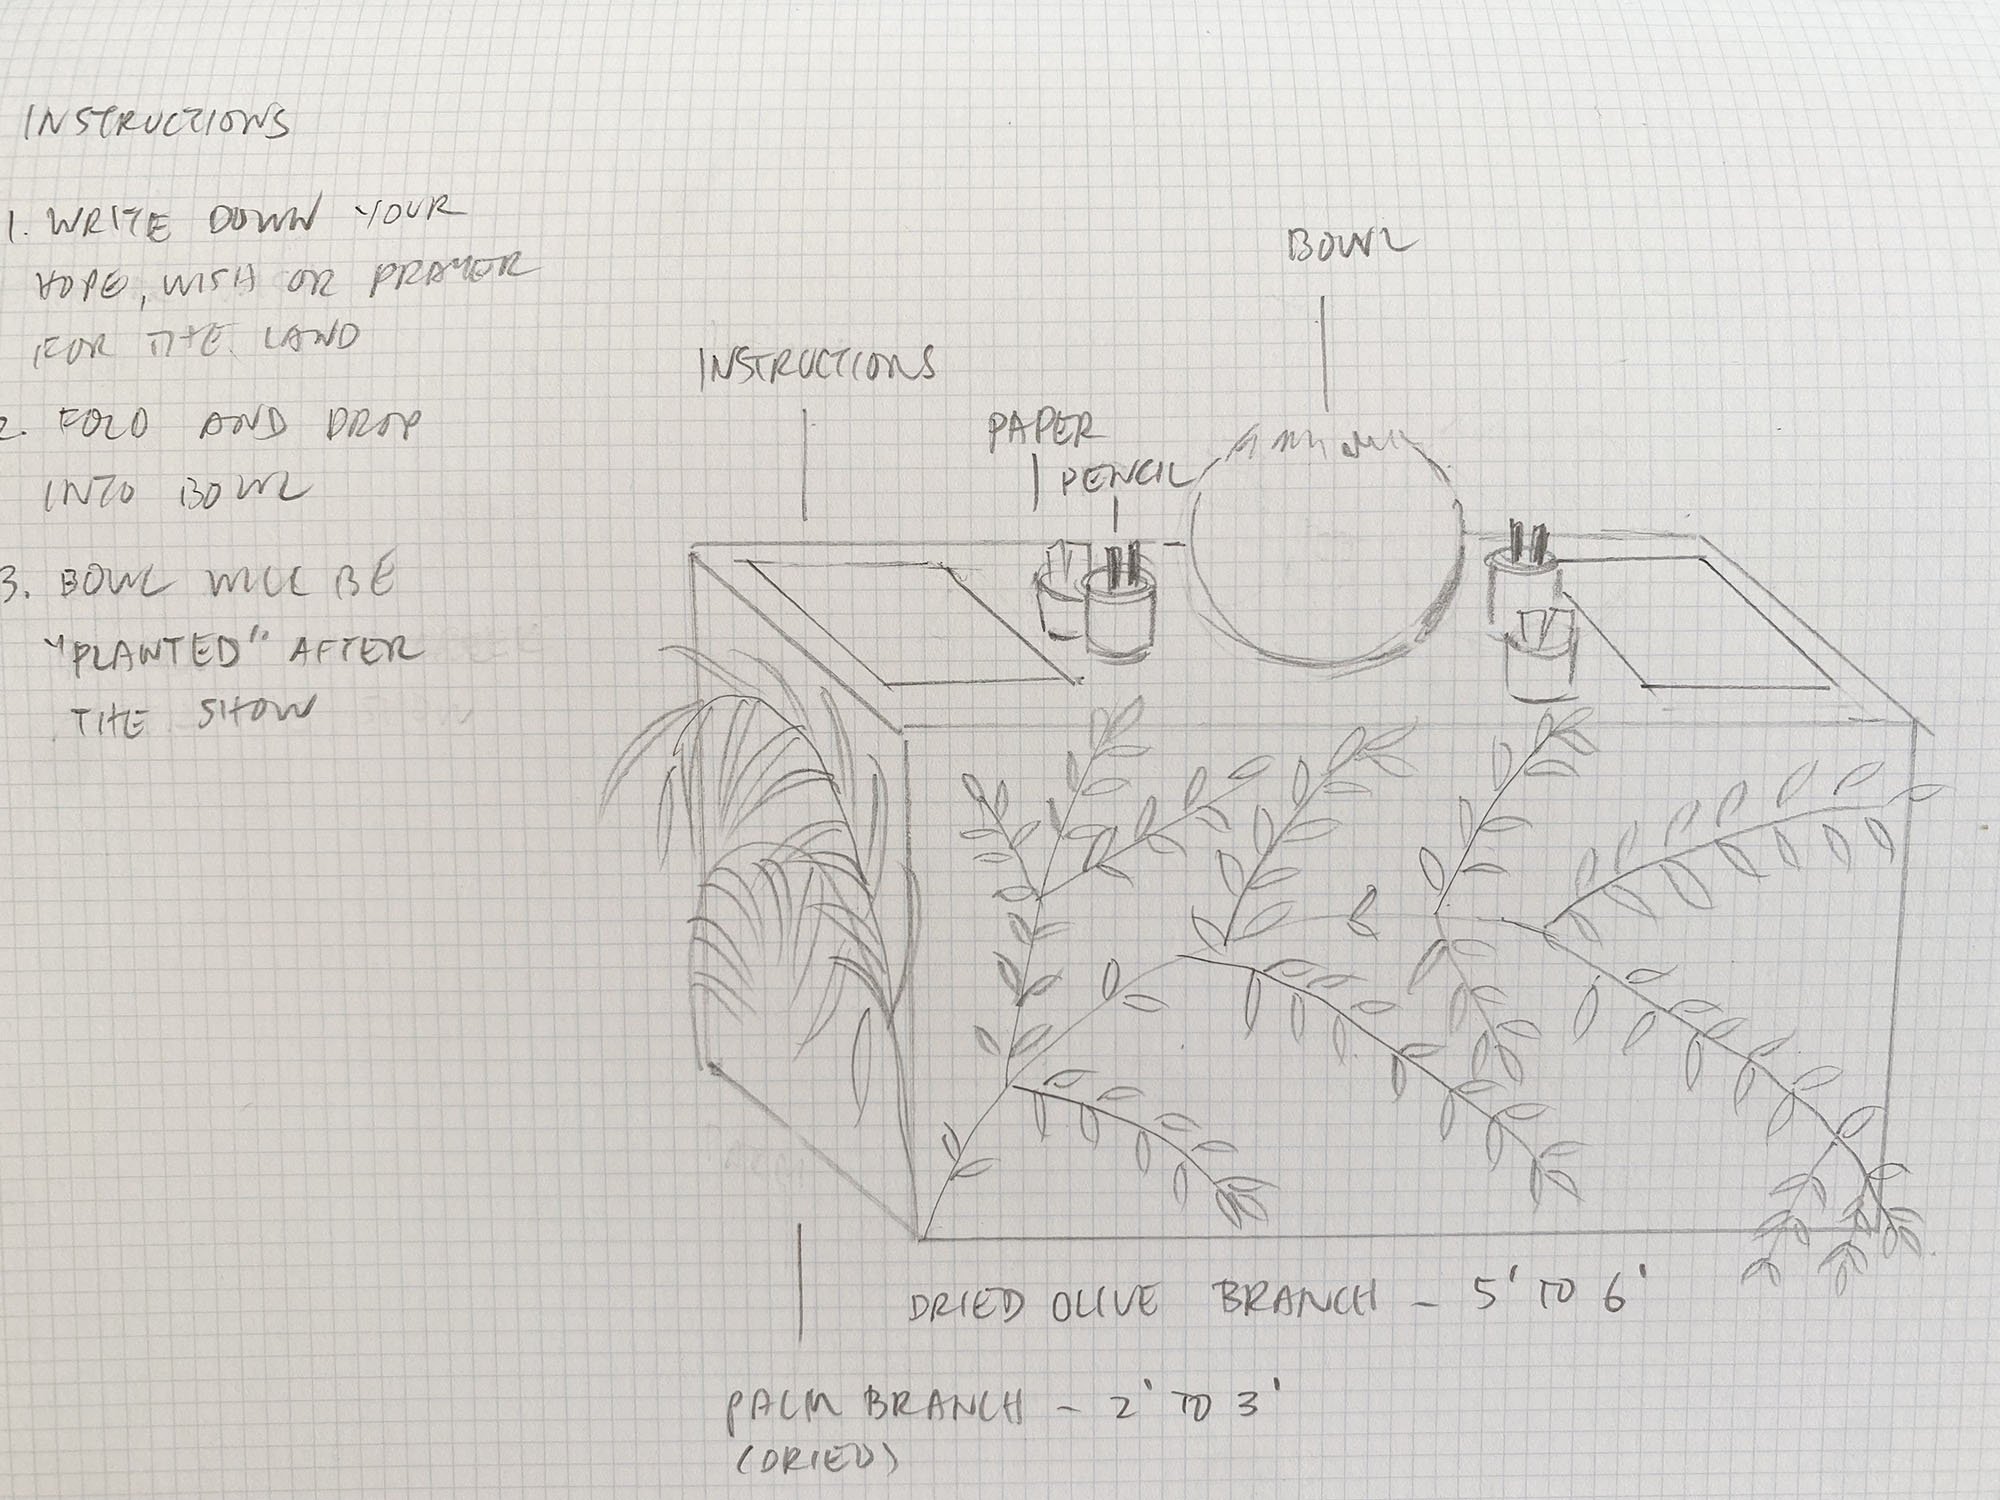 INSTRUCTIONS
1. WRITE DOWN YOUR
HOPE, WISH OR PRAYER
FOR THE LAND
2. FOLD AND DROP
INTO BOWL
3. BOWL WILL BE
"PLANTED" AFTER
THE SHOW
BOWL
INSTRUCTIONS
PAPER
PENCIL
DRIED OLIVE BRANCH - 5' TO 6'
PALM BRANCH - 2' TO 3'
(DRIED)